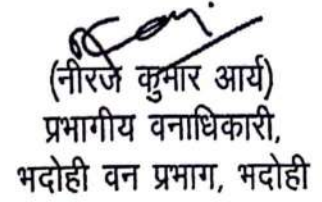 (नीरज कुमार आर्य)
प्रभागीय वनाधिकारी,
भदोही वन प्रभाग, भदोही